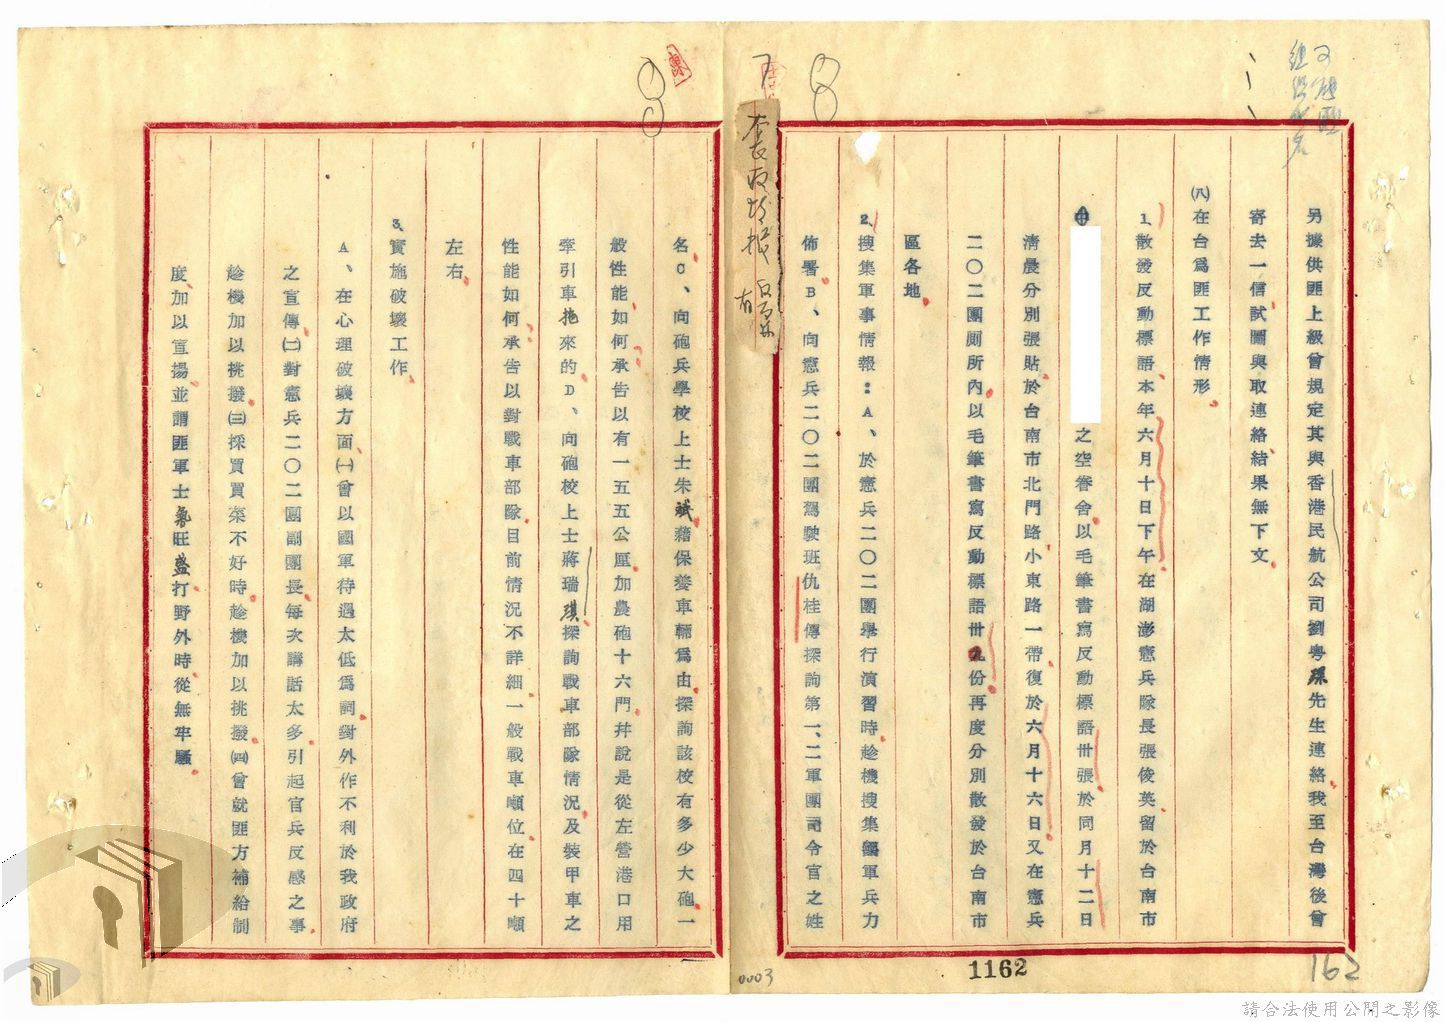 另據供匪上級曾規定其與香港民航公司劉粵孫先生連絡我至台灣後曾
寄去一信試圖與取連絡結果無下文
㈧在台爲匪工作情形
1、散發反動標語本年六月十日下午在湖澎憲兵隊長張俊英留於台南市
之空眷舍以毛筆書寫反動標語卅張於同月十二日
清晨分別張貼於台南市北門路小東路一帶復於六月十六日又在憲兵
二〇二團厠所內以毛筆書寫反動標語卅九份再度分別散發於台南市
區各地
2、搜集軍事情報：A、於憲兵二〇二團舉行演習時趁機搜集國軍兵力
佈署B、向憲兵二〇二團駕駛班仇桂傳探詢第一、二軍團司令官之姓
名C、向砲兵學校上士朱斌藉保養車輛爲由探詢該校有多少大砲一
般性能如何承告以有一五五公厘加農砲十六門幷說是從左營港口用
牽引車拖來的D、向砲校上士蔣瑞琪探詢戰車部隊情況及裝甲車之
性能如何承告以對戰車部隊目前情況不詳細一般戰車噸位在四十噸
左右
3、實施破壞工作
A、在心理破壞方面㈠曾以國軍待遇太低爲詞對外作不利於我政府
之宣傳㈡對憲兵二〇二團副團長每次講話太多引起官兵反感之事
趁機加以挑撥㈢採買買菜不好時趁機加以挑撥㈣曾就匪方補給制
度加以宣揚並謂匪軍士氣旺盛打野外時從無牢騷
0003
1162
162
請合法使用公開之影像